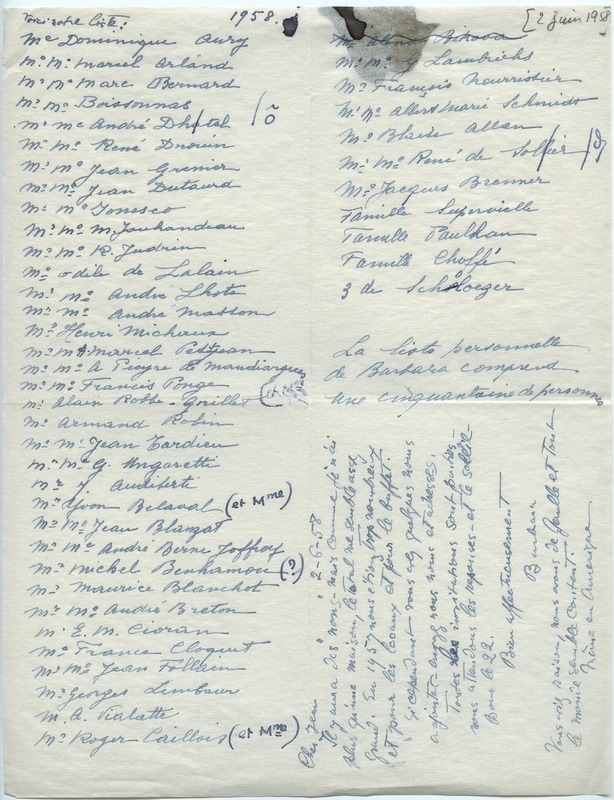 Voici notre liste: 1958.
Me Dominique Aury
Mr Me Marcel Arland
Mr Me Marc Bernard
Mr Me Boissonnas
Mr Me André Dhotel
Mr Me René Drouin
Mr Me Jean Grenier
Mr Me Jean Dutourd
Mr Me Ionesco
Mr Me M. Jouhandeau
Mr Me R. Judrin
Me Odile de Lalain
Mr Me André Lhote
Mr Me André Masson
Mr Henri Michaux
Mr Me Marcel Petitjean
Mr Me A Pieyre de Mandiargues
Mr Me Francis Ponge
Mr Alain Robbe-Grillet (et Me)
Mr Armand Robin
Mr Me Jean Tardieu
Mr Me G. Ungaretti
Mr J Audiberti
Mr Yvon Belaval (et Mme)
Mr Me Jean Blanzat
Mr Me André Berne Joffroy
Mr Michel Benhamou (?)
Mr Maurice Blanchot
Mr Me André Breton
Mr E. M. Cioran
Mr France Cloquet
Mr Me Jean Follain
Mr Georges Limbour
M. A. Vialatte
Mr Roger Caillois (et Mme)
[2 juin 1958
Mr Me G Lambrichs
Mr François Nourrissier
Mr Me Albert Marie Schmidt
Mr Blaise Allan
Mr Me René de Solier
Mr Jacques Brenner
Famille Supervielle
Famille Paulhan
Famille Choffé
3 de Schloezer
La liste personnelle
de Barbara comprend
une cinquantaine de personnes
2-6-58
Cher Jean
Il y aura des noms - mais comme je n'ai
plus qu'une maison, le total ne semble assez
grand. En 1957 nous étions trop nombreux
et pour les locaux et pour le buffet.
Si cependant vous avez quelques noms
à ajouter envoyez nous noms et adresses.
Toutes les invitations sont parties.
nous attendons les réponses et le soleil
pour le 22.
Bien affectueusement
Barbara
Vous avez raison, nous avons de Gaulle et tout
le monde semble content
même en Amérique